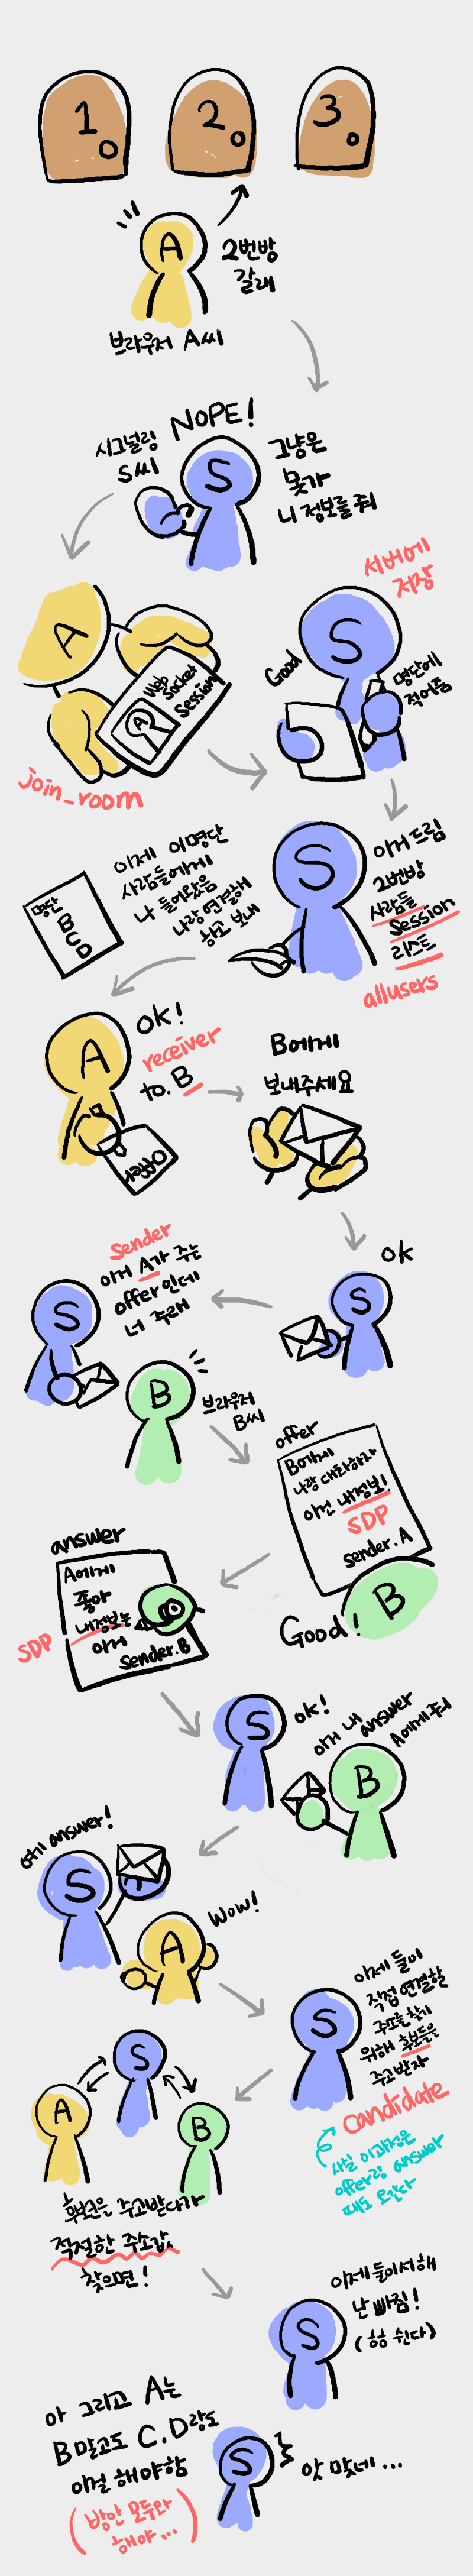 1
2
3
A
2번방
갈래
브라우저 A씨
시그널링
S씨
NOPE!
S
그냥은
못가
니 정보를 줘
A
Web
Socket
Session
A
join_room
서버에
저장
Good
S
명단에
적어줌
명단
B
C
D
이제 이 명단
사람들에게
나 들어왔음
나랑 연결해
하고 보내
S
이거 드림
2번방
사람들
Session
리스트
allusers
A
OK!
receiver
to. B
offer
B에게
보내주세요
ok
S
Sender
이거 A가 주는
offer인데
너 주래
S
B
브라우저
B씨
offer
B에게
나랑 대화하자
이건 내정보!
SDP
sender.A
B
Good!
answer
A에게
좋아
내정보는
이거
SDP
sender.B
S
ok!
이거 내 answer
A에게 줘
B
여기 answer!
S
A
Wow!
S
이제 둘이
직접 연결할
주소를 찾기
위해 후보들을
주고받자
candidate
사실 이과정은
offer랑 answer
때도 오간다
S
A
B
후보군을 주고받다가
적절한 주소값
찾으면!
이제 둘이서 해
난 빠짐!
(힘 쉰다)
S
아 그리고 A는
B말고도 C, D랑도
이걸 해야함
(방안 모두와
해야...)
S
앗 맞네...